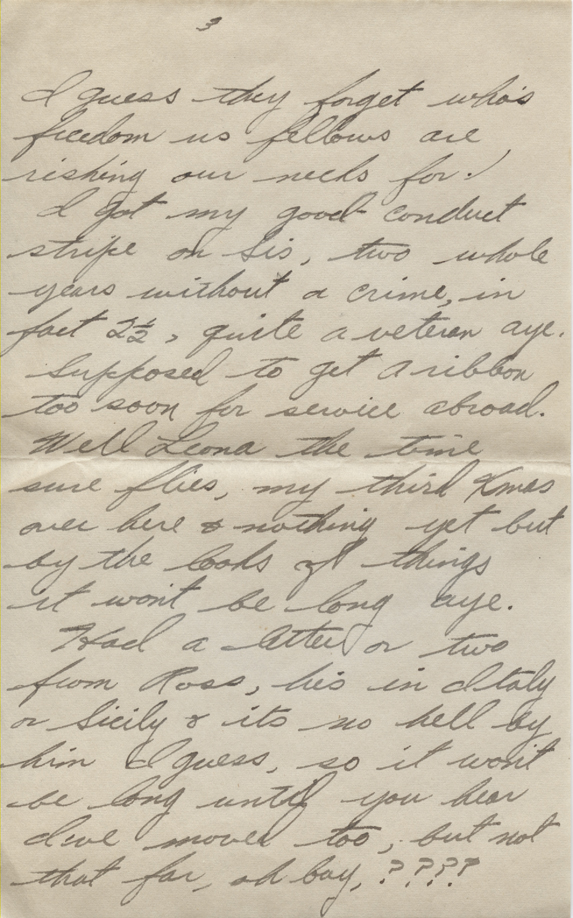 3
I guess they forget who's
freedom us fellows are
risking our necks for!
I got my good conduct
stripe on Sis, two whole
years without a crime, in
fact 2½, quite a veteran aye.
Supposed to get a ribbon
too soon for service abroad.
Well Leona the time
sure flies, my third Xmas
over here & nothing yet but
by the looks of things
it won't be long aye.
Had a letter or two
from Ross, his in Italy
or Sicily & its no hell by
him I guess, so it won't
be long until you hear
Ive moved too, but not
that far, oh boy, ????